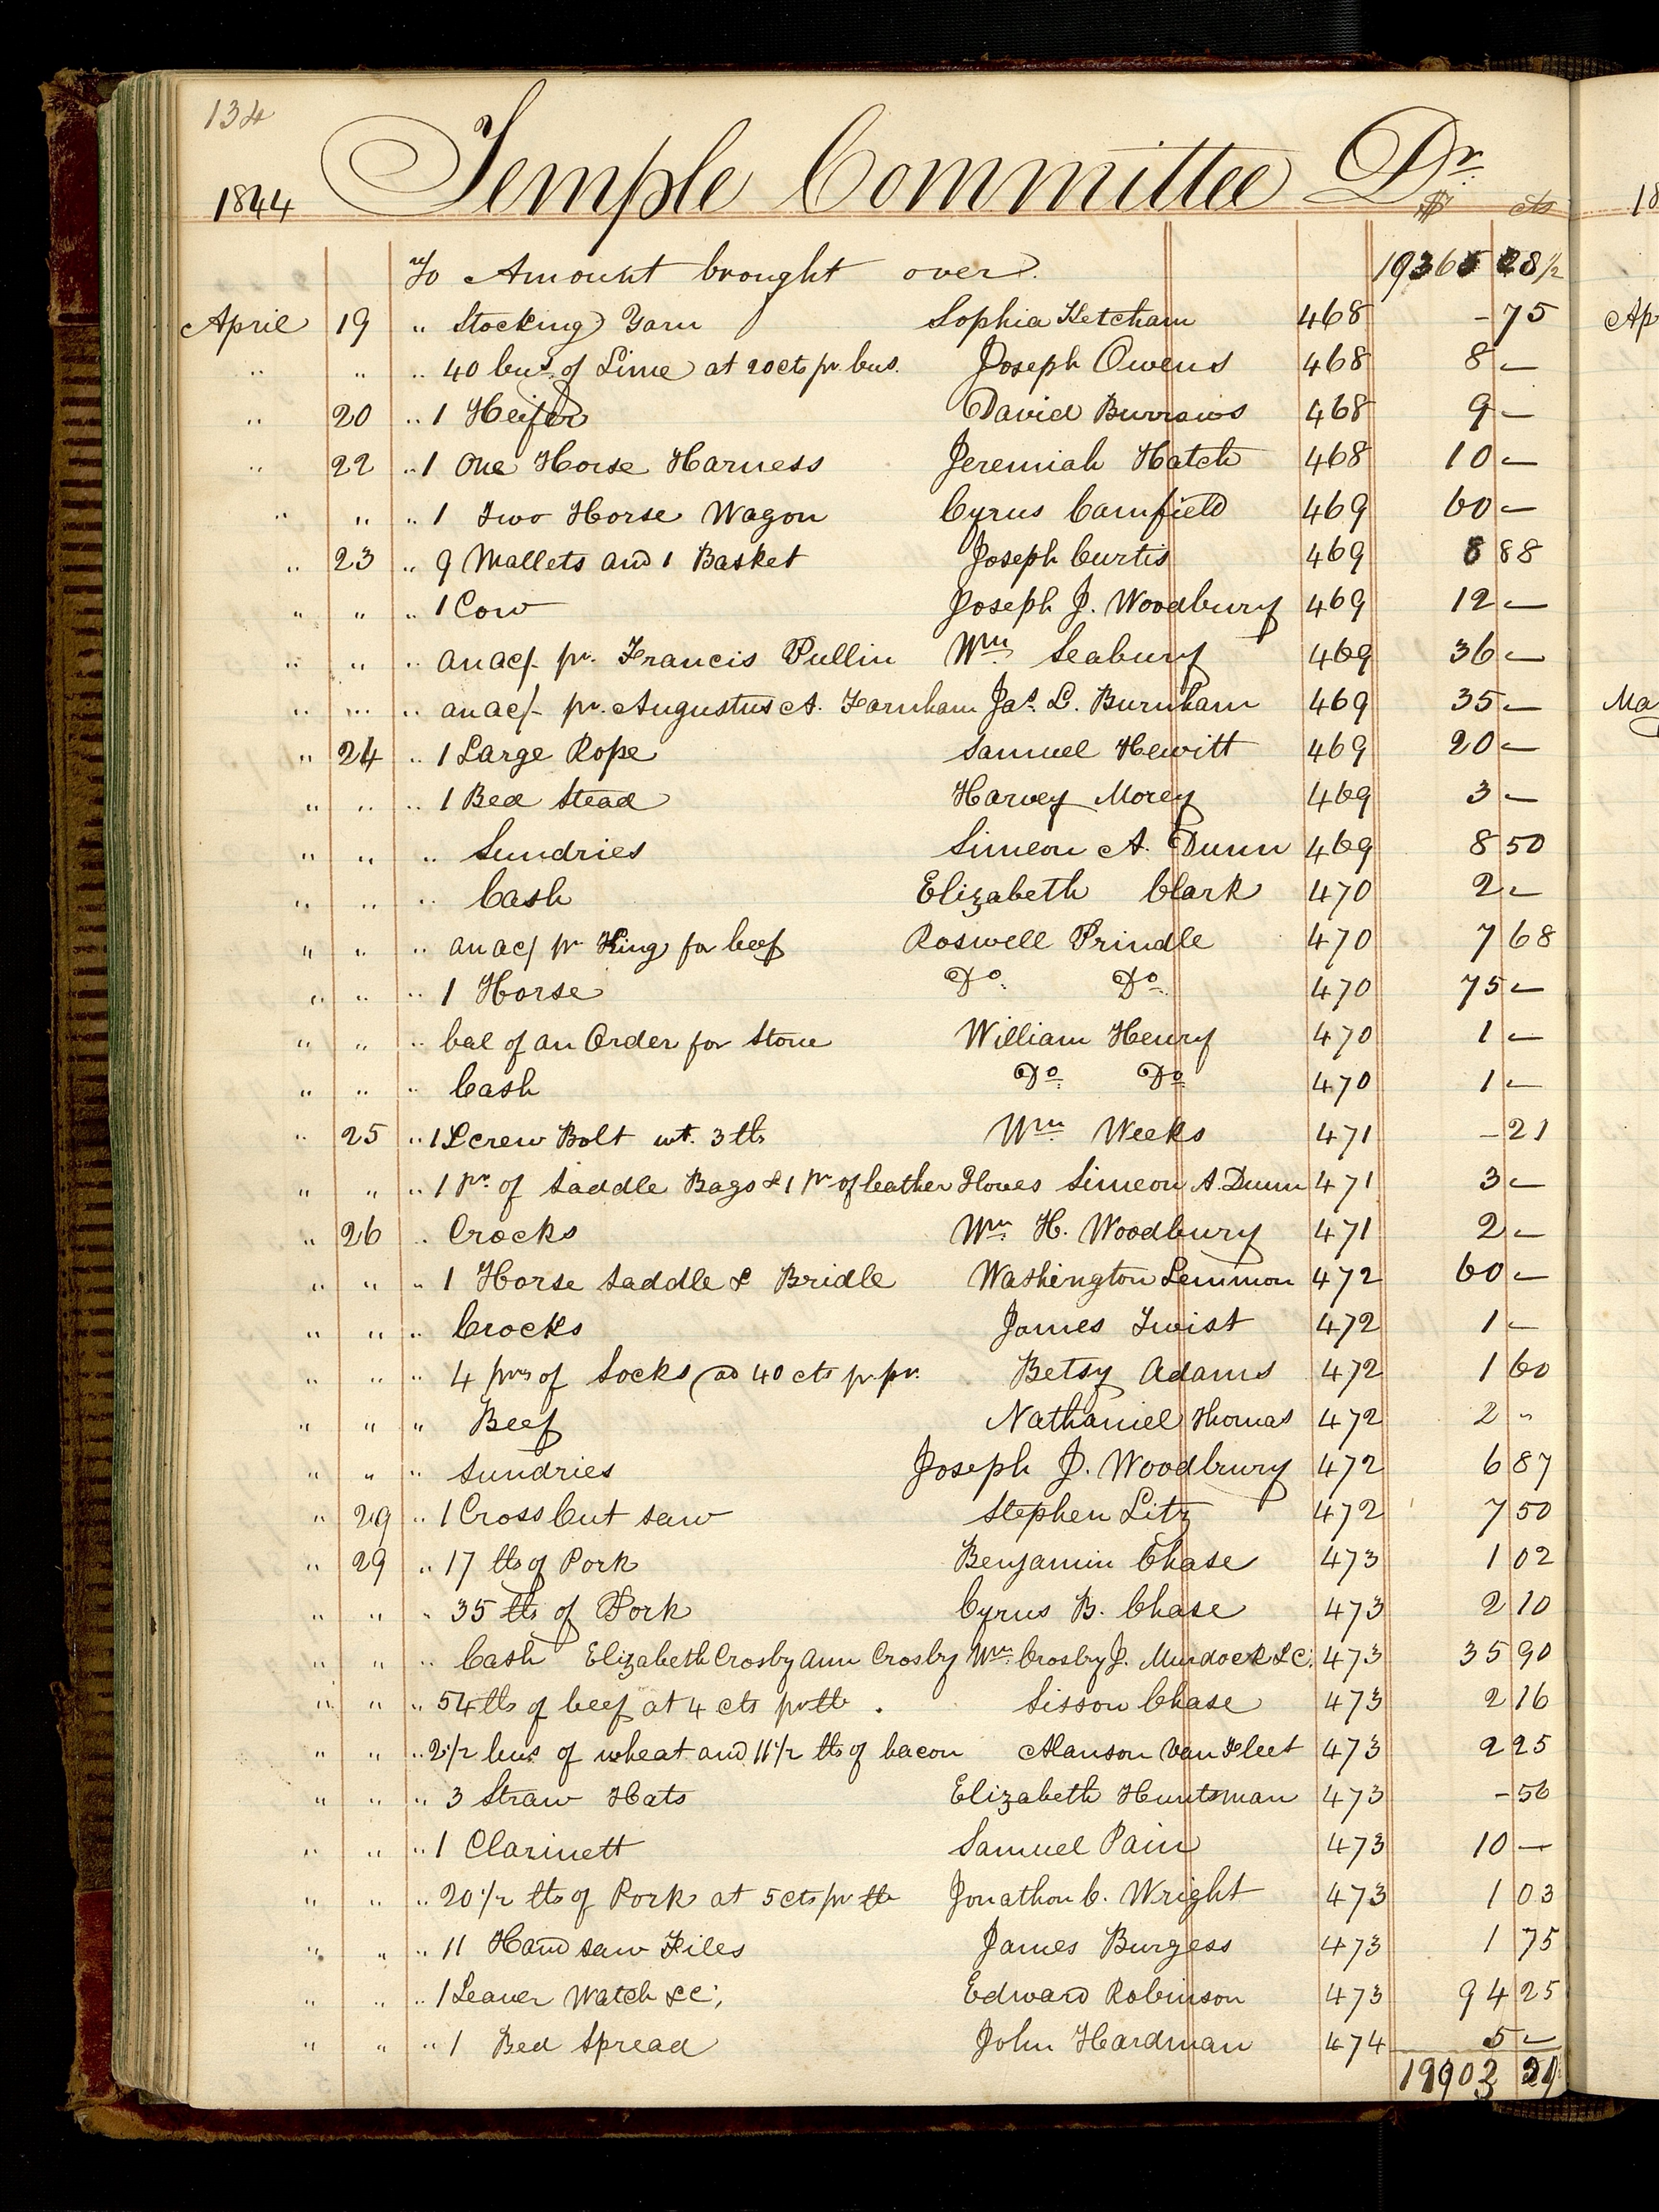 134
1844 Temple Committee Dr.
$ cts
To Amount brought over. 19365 28 1/2
April 19 " Stocking Yarn Sophia Ketcham 468 - 75
" " " 40 bus. of Lime at 20 cts pr. bus. Joseph Owens 468 8 —
" 20 " 1 Heifer David Burrows 468 9 —
" 22 " 1 One Horse Harness Jeremiah Hatch 468 10 —
" " " 1 Two Horse Wagon Cyrus Canfield 469 60 —
" 23 " 9 Mallets and 1 Basket Joseph Curtis 469 8 88
" " " 1 Cow Joseph J. Woodbury 469 12 —
" " " an ac/- pr. Francis Pullin Wm. Seabury 469 36 —
" " " an ac/- pr. Augustus A. Farnham Jas. L. Burnham 469 35 —
" 24 " 1 Large Rope Samuel Hewitt 469 20 —
" " " 1 Bed Stead Harvey Morey 469 3 —
" " " Sundries Simeon A. Dunn 469 8 50
" " " Cash Elizabeth Clark 470 2 —
" " " an ac/ pr King for beef Roswell Prindle 470 7 68
" " " 1 Horse Do. Do. 470 75 —
" " " bal of an Order for Stone William Henry 470 1 —
" " " Cash Do. Do. 470 1 —
" 25 " 1 Screw Bolt wt. 3 lbs Wm Weeks 471 - 21
" " " 1 pr. of Saddle Bags & 1 pr of leather Gloves Simeon A. Dunn 471 3 —
" 26 " Crocks Wm. H. Woodbury 471 2 —
" " " 1 Horse Saddle & Bridle Washington Lemmon 472 60 —
" " " Crocks James Twist 472 1 —
" " " 4 prs of Socks @ 40 cts pr. pr. Betsy Adams 472 1 60
" " " Beef Nathaniel Thomas 472 2 "
" " " Sundries Joseph J. Woodbrury 472 6 87
" 29 " 1 Cross Cut Saw Stephen Litz 472 7 50
" 29 " 17 lbs of Pork Benjamin Chase 473 1 02
" " " 35 lbs of Pork Cyrus B. Chase 473 2 10
" " " Cash Elizabeth Crosby Ann Crosby Wm. Crosby J. Murdock &C. 473 35 90
" " " 54 lbs of beef at 4 cts pr lb . Sisson Chase 473 2 16
" " " 2 1/2 bus of wheat and 11 1/2 lbs of bacon Alanson Van Fleet 473 2 25
" " " 3 Straw Hats Elizabeth Huntsman 473 - 56
" " " 1 Clarinett Samuel Pain 473 10 —
" " " 20 1/2 lbs of Pork at 5 cts pr lb Jonathon C. Wright 473 1 03
" " " 11 Hand saw Files James Burgess 473 1 75
" " " 1 Leaver Watch &c, Edward Robinson 473 94 25
" " " 1 Bed Spread John Hardman 474 5 —
19903
18
Ap
Ma